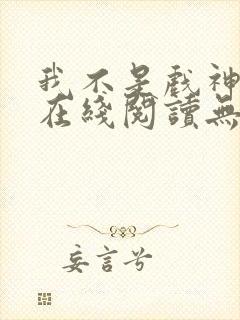 我不是戲神
在綫閱讀無
妄言兮